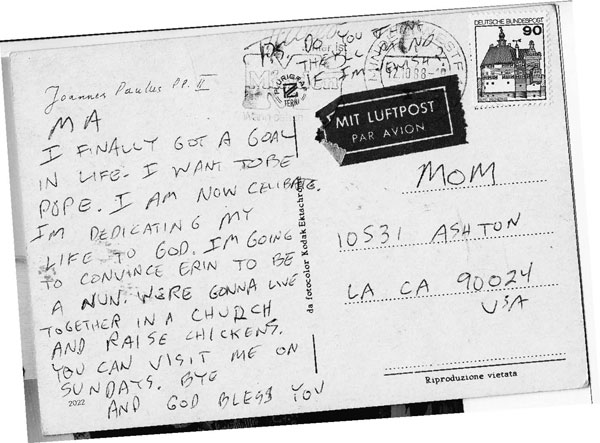 PS, DO YOU THINK
THE MIND
IF I'M ENGLISH?
12.10.88-18
DEUTSCHE BUNDESPOST
90
Joannes Paulus P.P. II
PLURIGRAF
TERNI
MIT LUFTPOST
PAR AVION
MA
I FINALLY GOT A GOAL
IN LIFE. I WANT TO BE
POPE. I AM NOW CELIBATE.
I'M DEDICATING MY
LIFE TO GOD. I'M GOING
TO CONVINCE ERIN TO BE
A NUN. WE'RE GONNA LIVE
TOGETHER IN A CHURCH
AND RAISE CHICKENS.
YOU CAN VISIT ME ON
SUNDAYS. BYE
AND GOD BLESS YOU
2022
da fotocolor Kodak Ektachrome
MOM
10531 ASHTON
LA CA 90024
USA
Riproduzione vietata